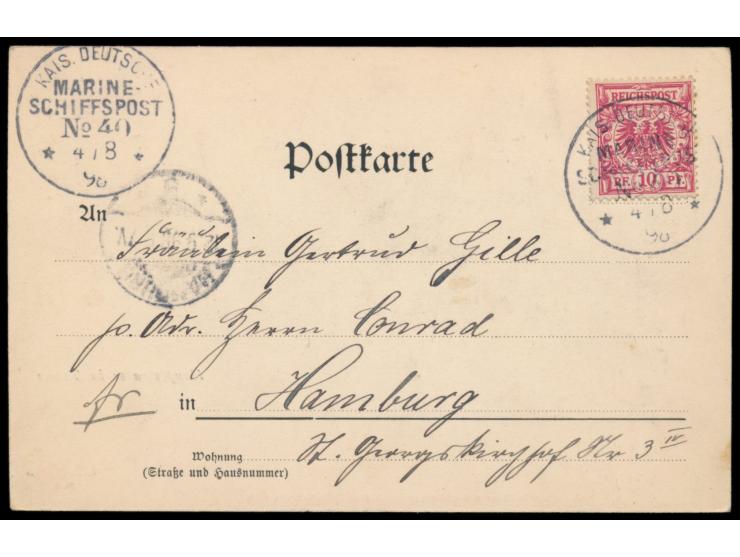 KAIS. DEUTSCHE
MARINE-
SCHIFFSPOST
No 40
* 4/8 *
98
REICHSPOST
PF. 10 PF.
KAIS. DEUTSCHE
MARINE-
4/8
98
Postkarte
An
Fräulein Gertrud Gille
p. Adr. Herrn Conrad
in Hamburg
Wohnung
(Straße und Hausnummer)
St. Georgskirchhof Nr 3 IV